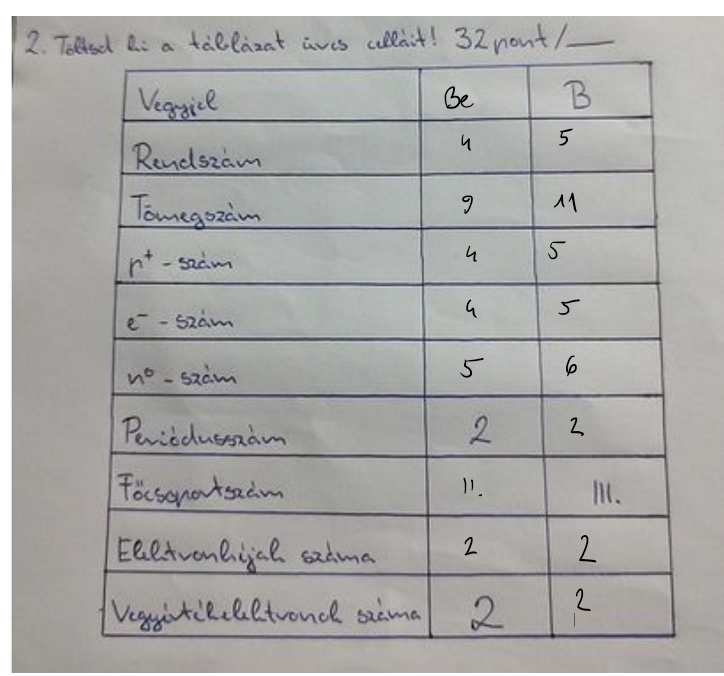 2. Töltsd ki a táblázat üres celláit! 32 pont/___
Vegyjel Be B
Rendszám 4 5
Tömegszám 9 11
p⁺ - szám 4 5
e⁻ - szám 4 5
n⁰ - szám 5 6
Periódusszám 2 2
Főcsoportszám II. III.
Elektronhéjak száma 2 2
Vegyértékelektronok száma 2 2